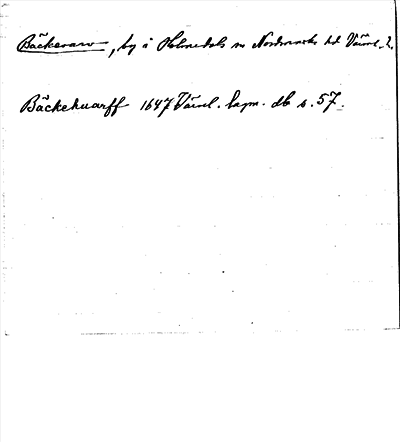 Bäckevarv, by i Holmedals sn Nordmarks hd Värml. l.
Bäckehuarff 1647 Värml. lagm. db s. 57.